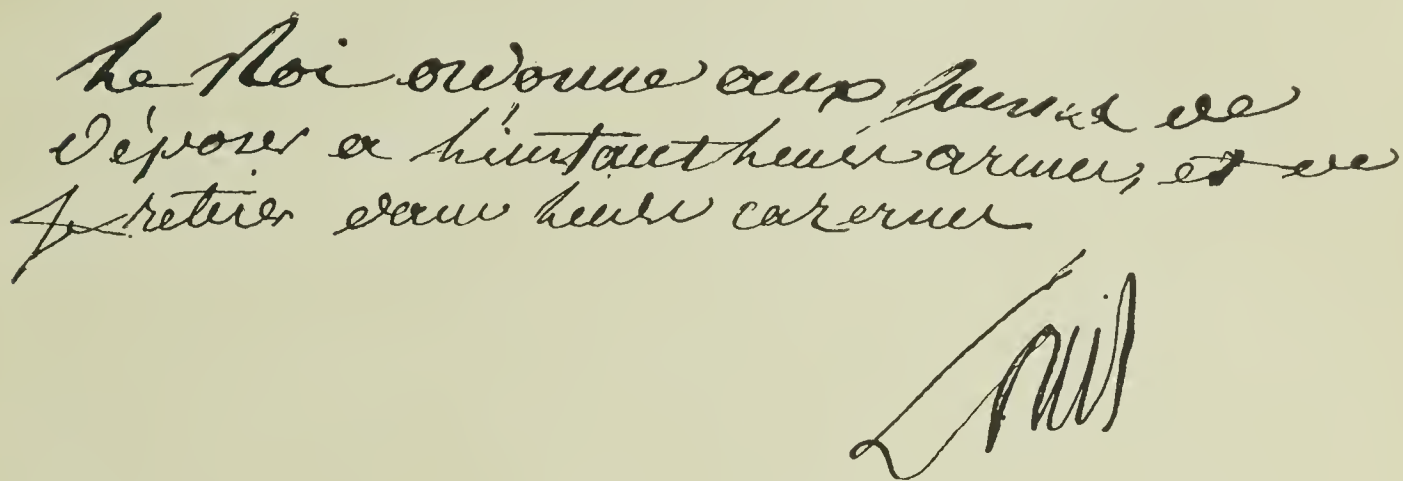 Le Roi ordonne aux Suisses de
déposer a l'instant leurs armes, et de
se retirer dans leurs casernes
Louis